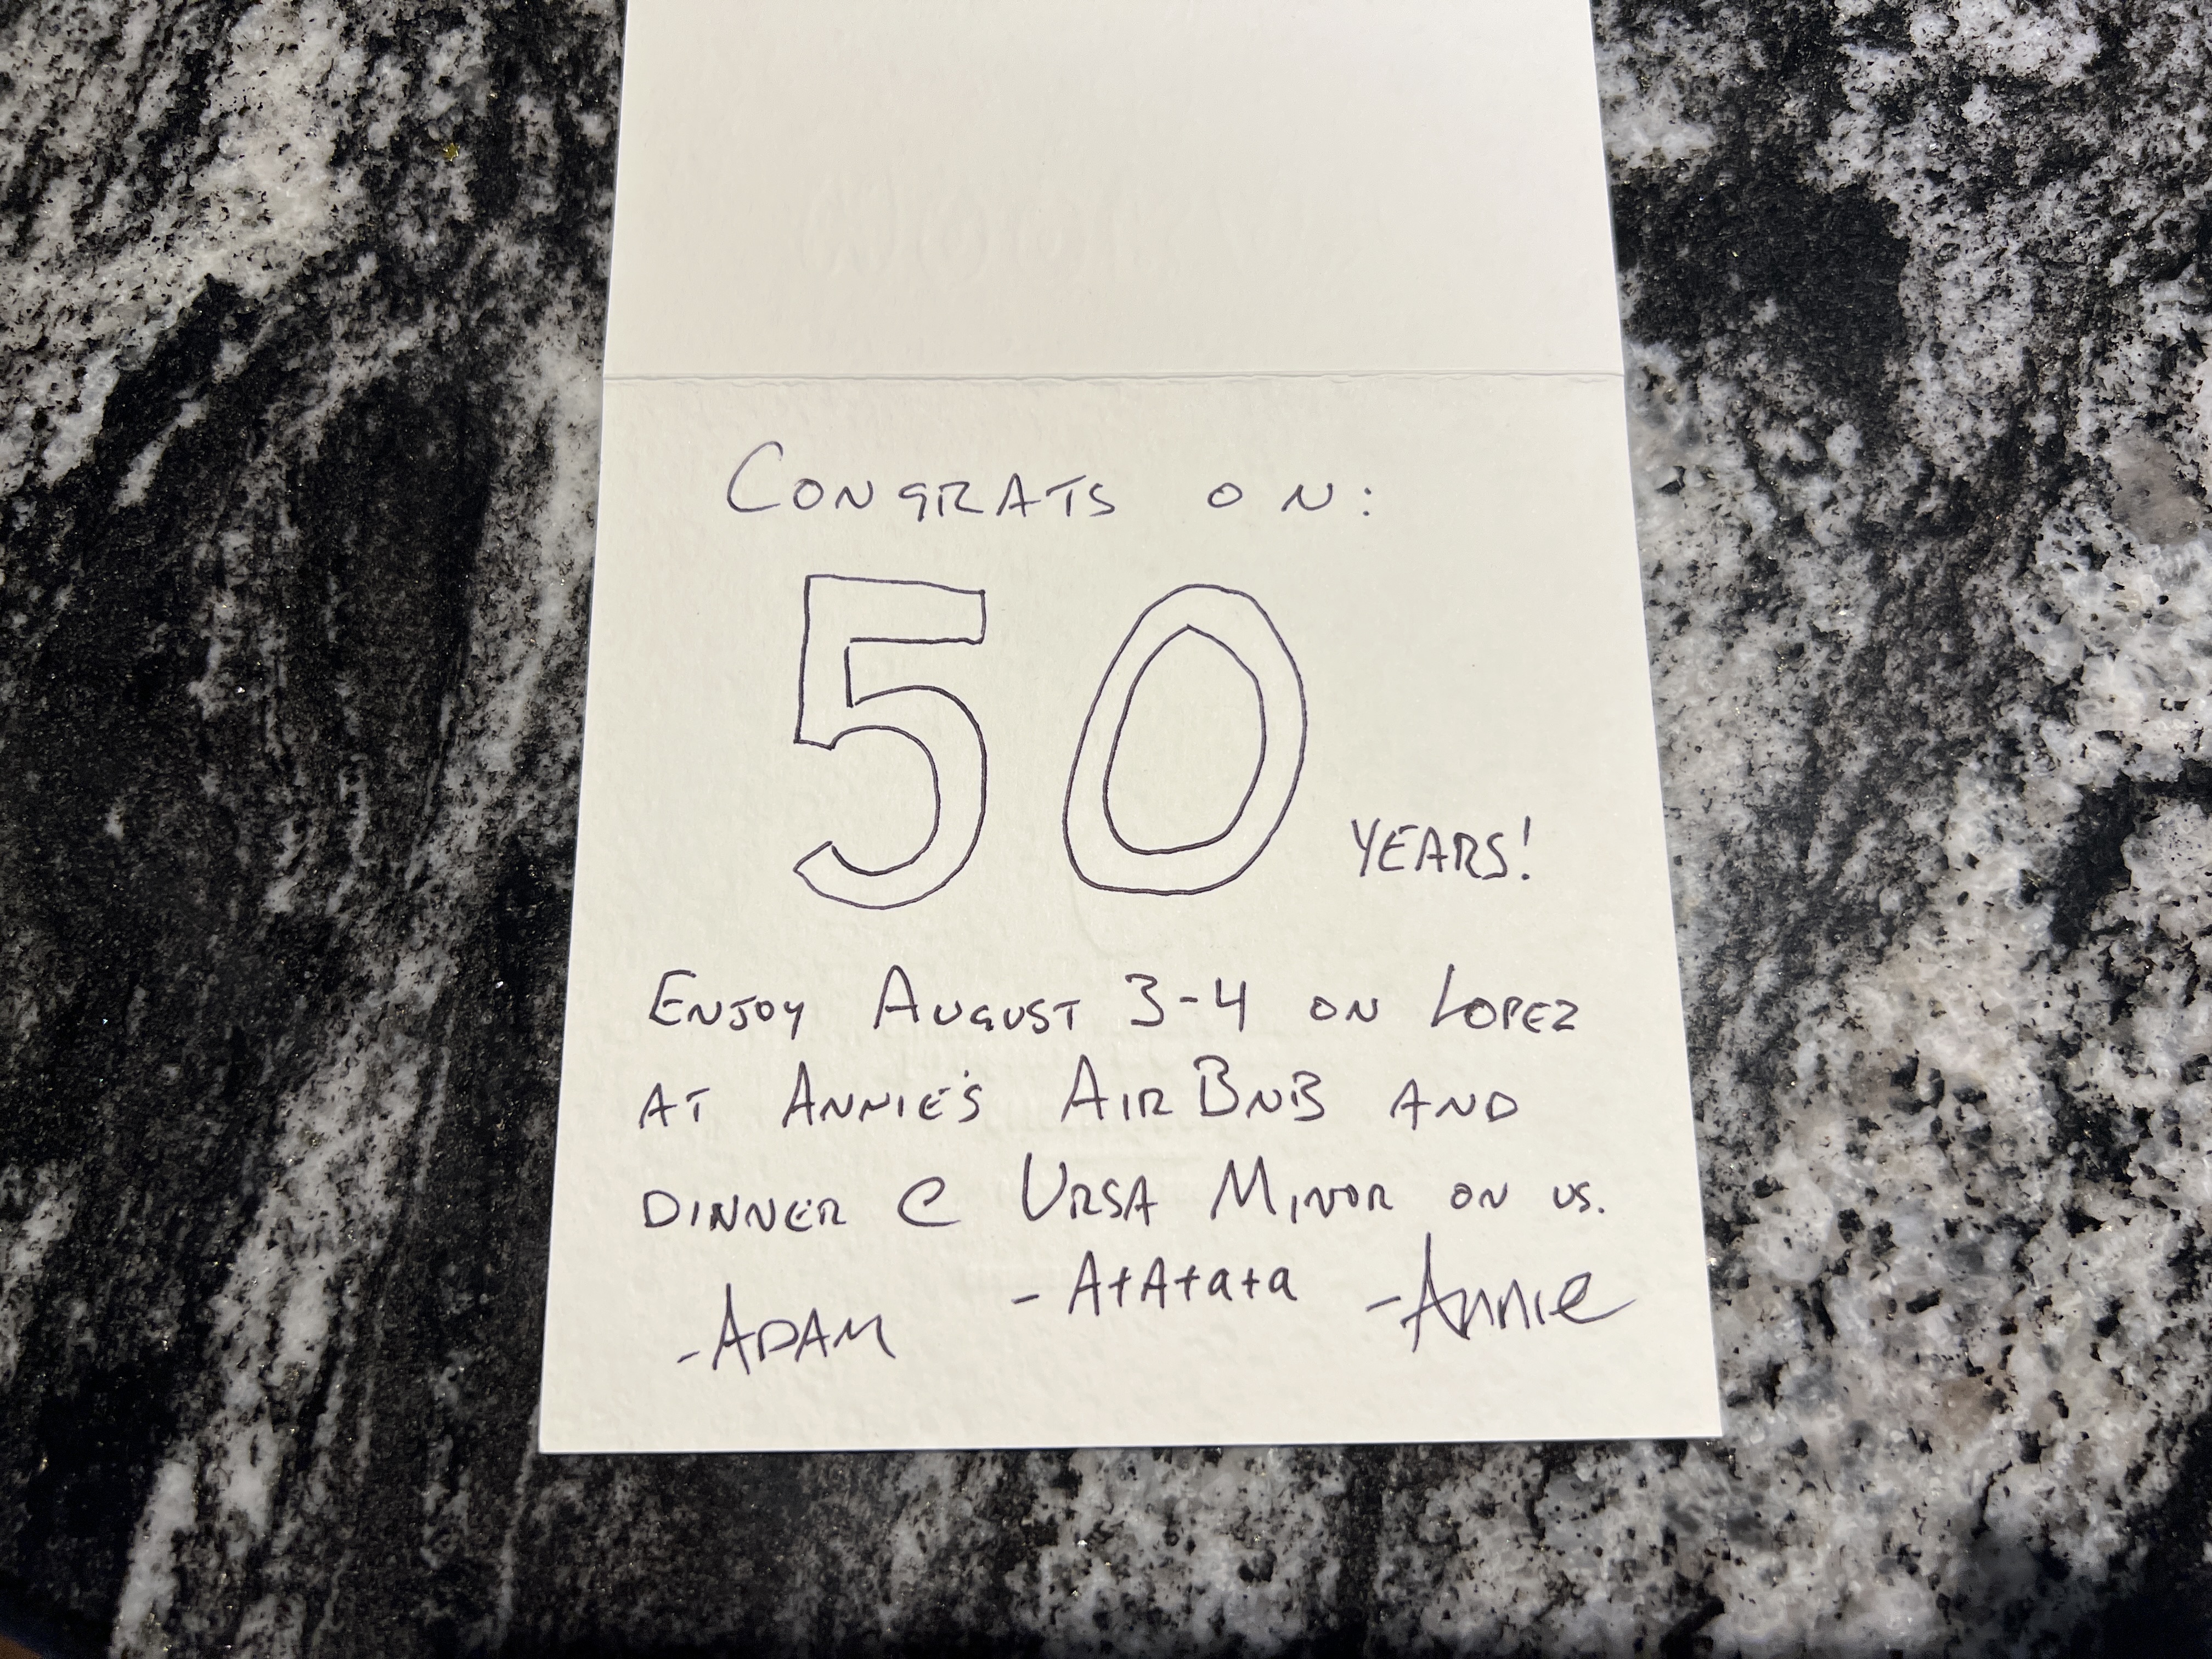 CONGRATS ON:
50 YEARS!
ENJOY AUGUST 3-4 ON LOPEZ
AT ANNIE'S AIRBNB AND
DINNER @ URSA MINOR ON US.
-ADAM - A+A+a+a -Annie